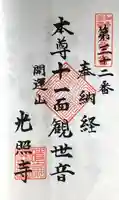 第三十二番
奉納経
本尊十一面観世音
開運山
光照寺